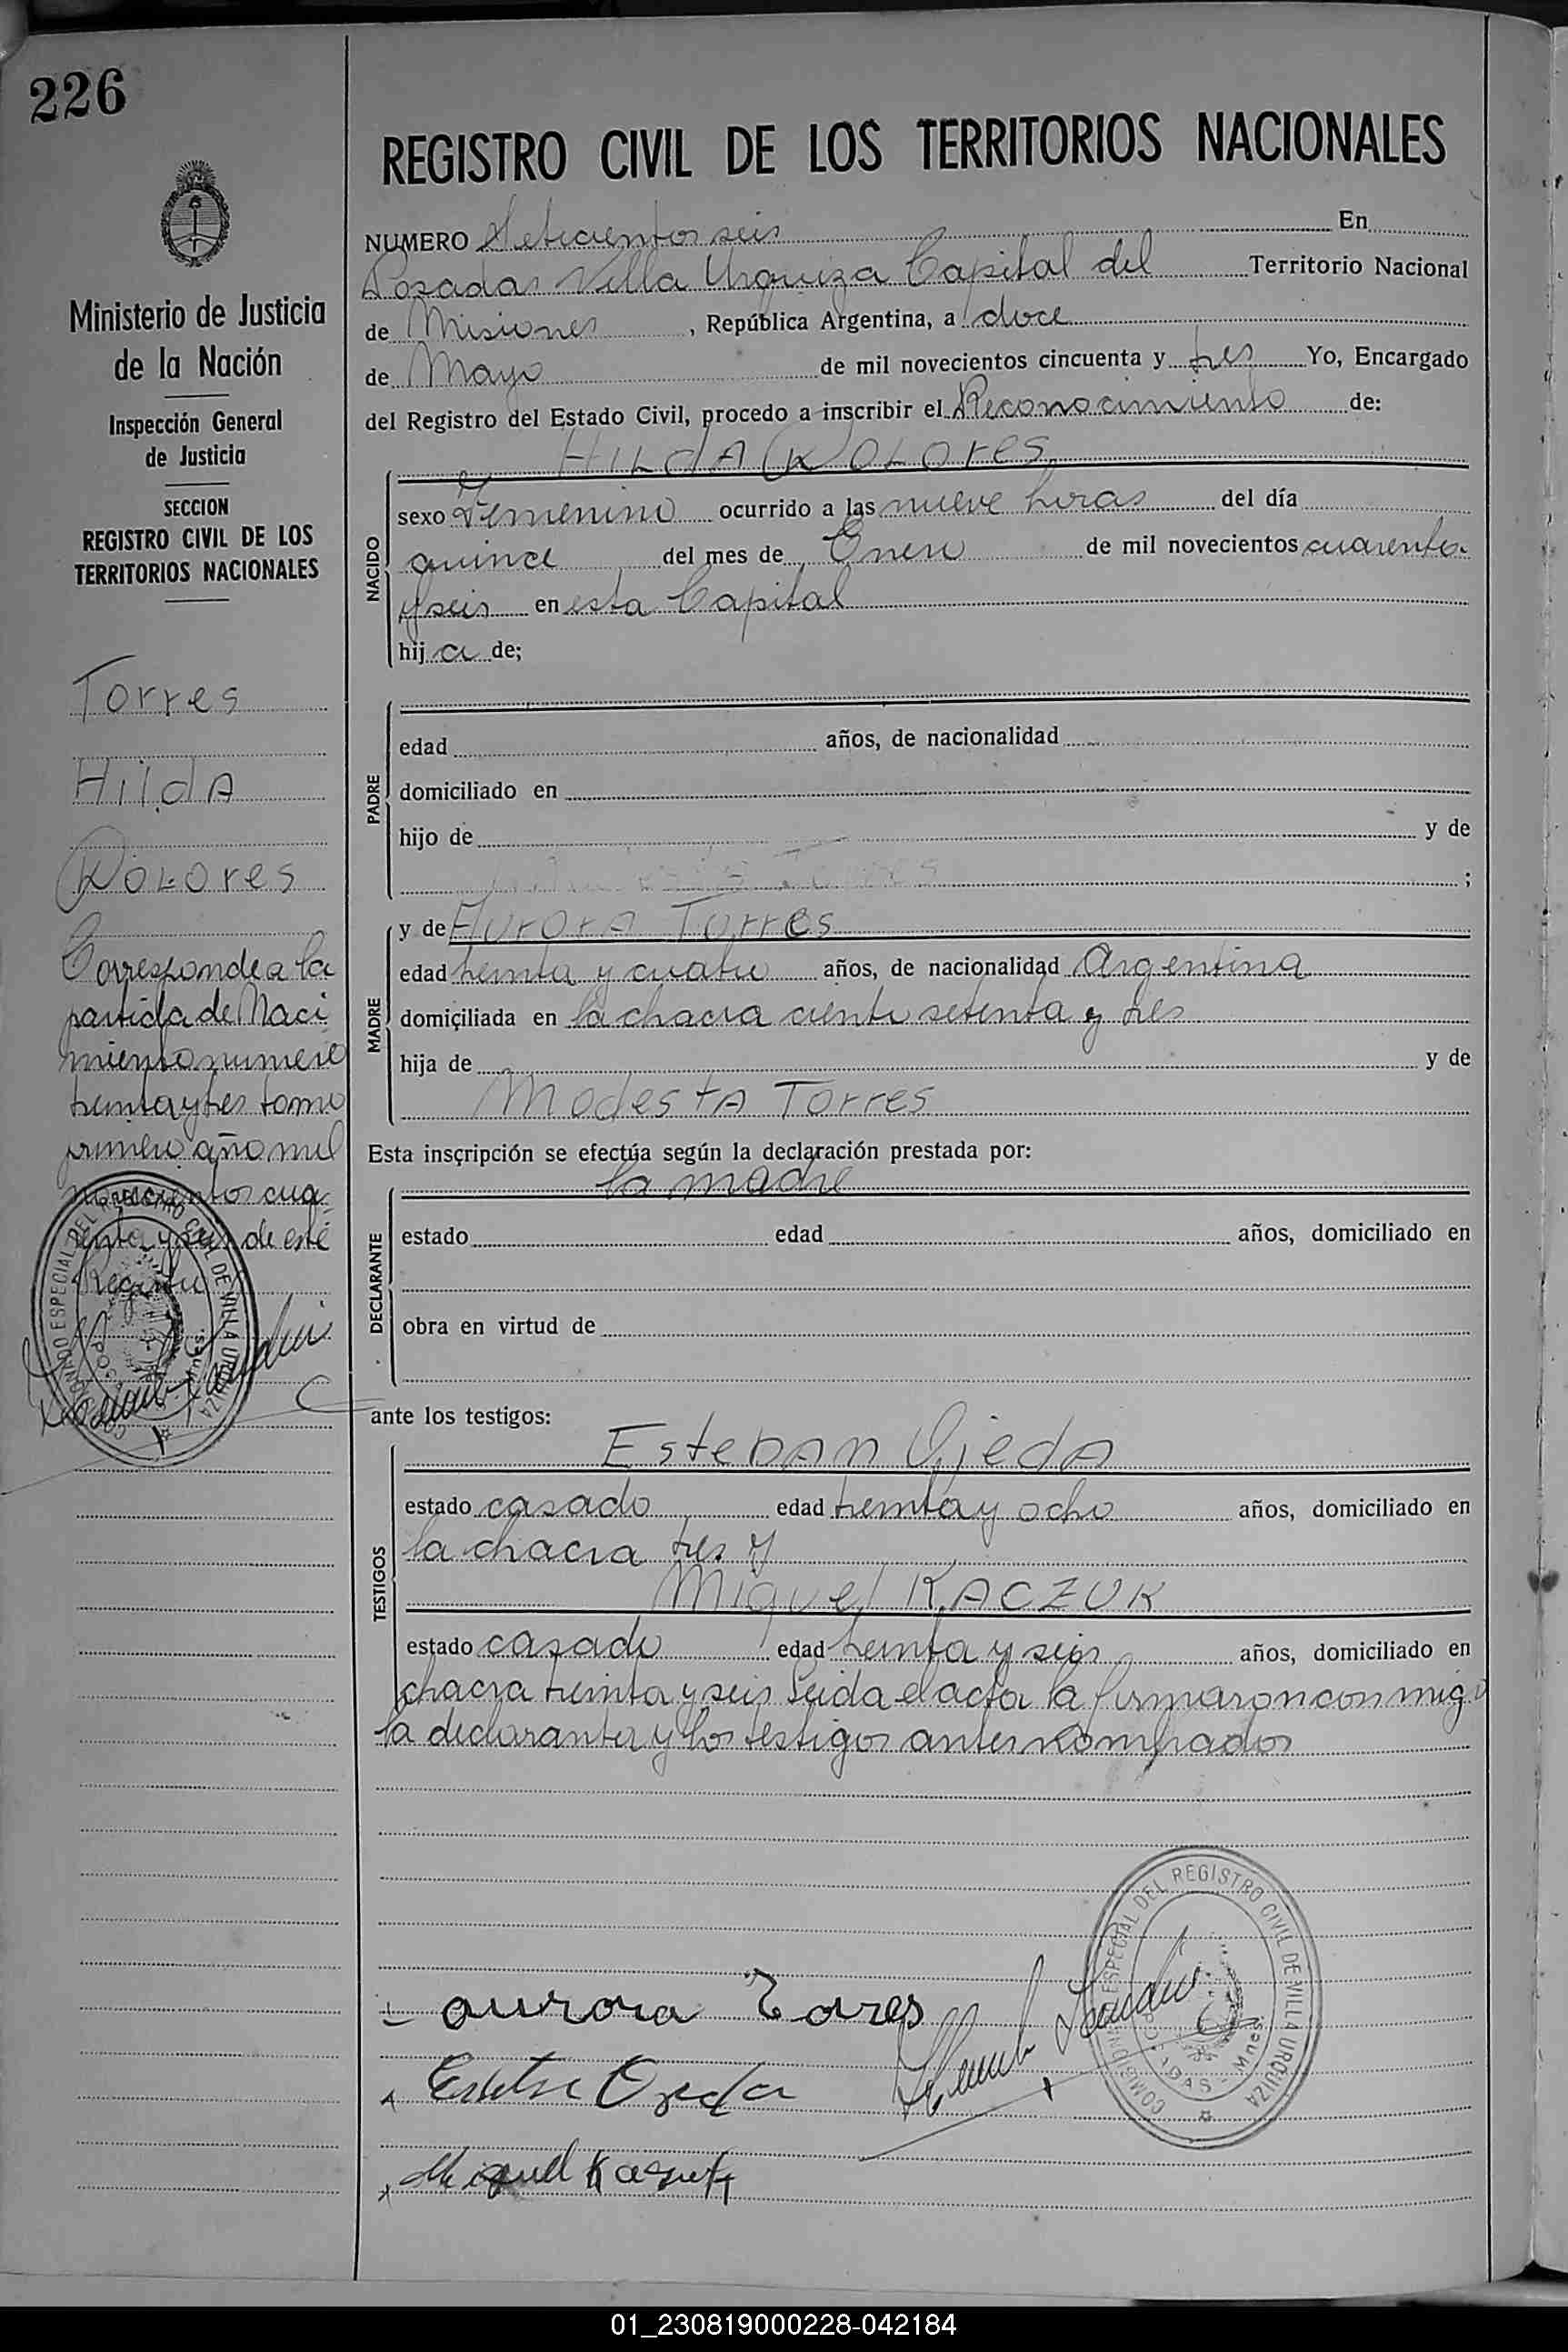 226
REGISTRO CIVIL DE LOS TERRITORIOS NACIONALES
Ministerio de Justicia
de la Nación
Inspección General
de Justicia
SECCION
REGISTRO CIVIL DE LOS
TERRITORIOS NACIONALES
Torres
Hilda
Dolores
Corresponde a la
partida de Naci
miento numero
treinta y tres tomo
primero año mil
novecientos cua
renta y seis de este
Registro
NUMERO Seteciento seis En
Posadas Villa Urquiza Capital del Territorio Nacional
de Misiones, República Argentina, a doce
de Mayo de mil novecientos cincuenta y tres Yo, Encargado
del Registro del Estado Civil, procedo a inscribir el Reconocimiento de:
HILdA DOLOreS
NACIDO
sexo Femenino ocurrido a las nueve horas del día
quince del mes de Enero de mil novecientos cuarenta
y seis en esta Capital
hija de;
PADRE
edad años, de nacionalidad
domiciliado en
hijo de y de
;
MADRE
y de Aurora Torres
edad treinta y cuatro años, de nacionalidad Argentina
domiciliada en la chacra ciento setenta y tres
hija de y de
Modesta Torres
Esta inscripción se efectúa según la declaración prestada por:
la madre
DECLARANTE
estado edad años, domiciliado en
obra en virtud de
ante los testigos:
TESTIGOS
Esteban Ojeda
estado casado edad treinta y ocho años, domiciliado en
la chacra tres y
Miguel KACZUK
estado casado edad treinta y seis años, domiciliado en
chacra treinta y seis Leida el acta la firmaron con migo
la declaranta y los testigos antes nombrados
aurora Torres
Ojeda
Miguel
COMISIONADO ESPECIAL DEL REGISTRO CIVIL DE VILLA URQUIZA
POSADAS - Mnes.
01_230819000228-042184